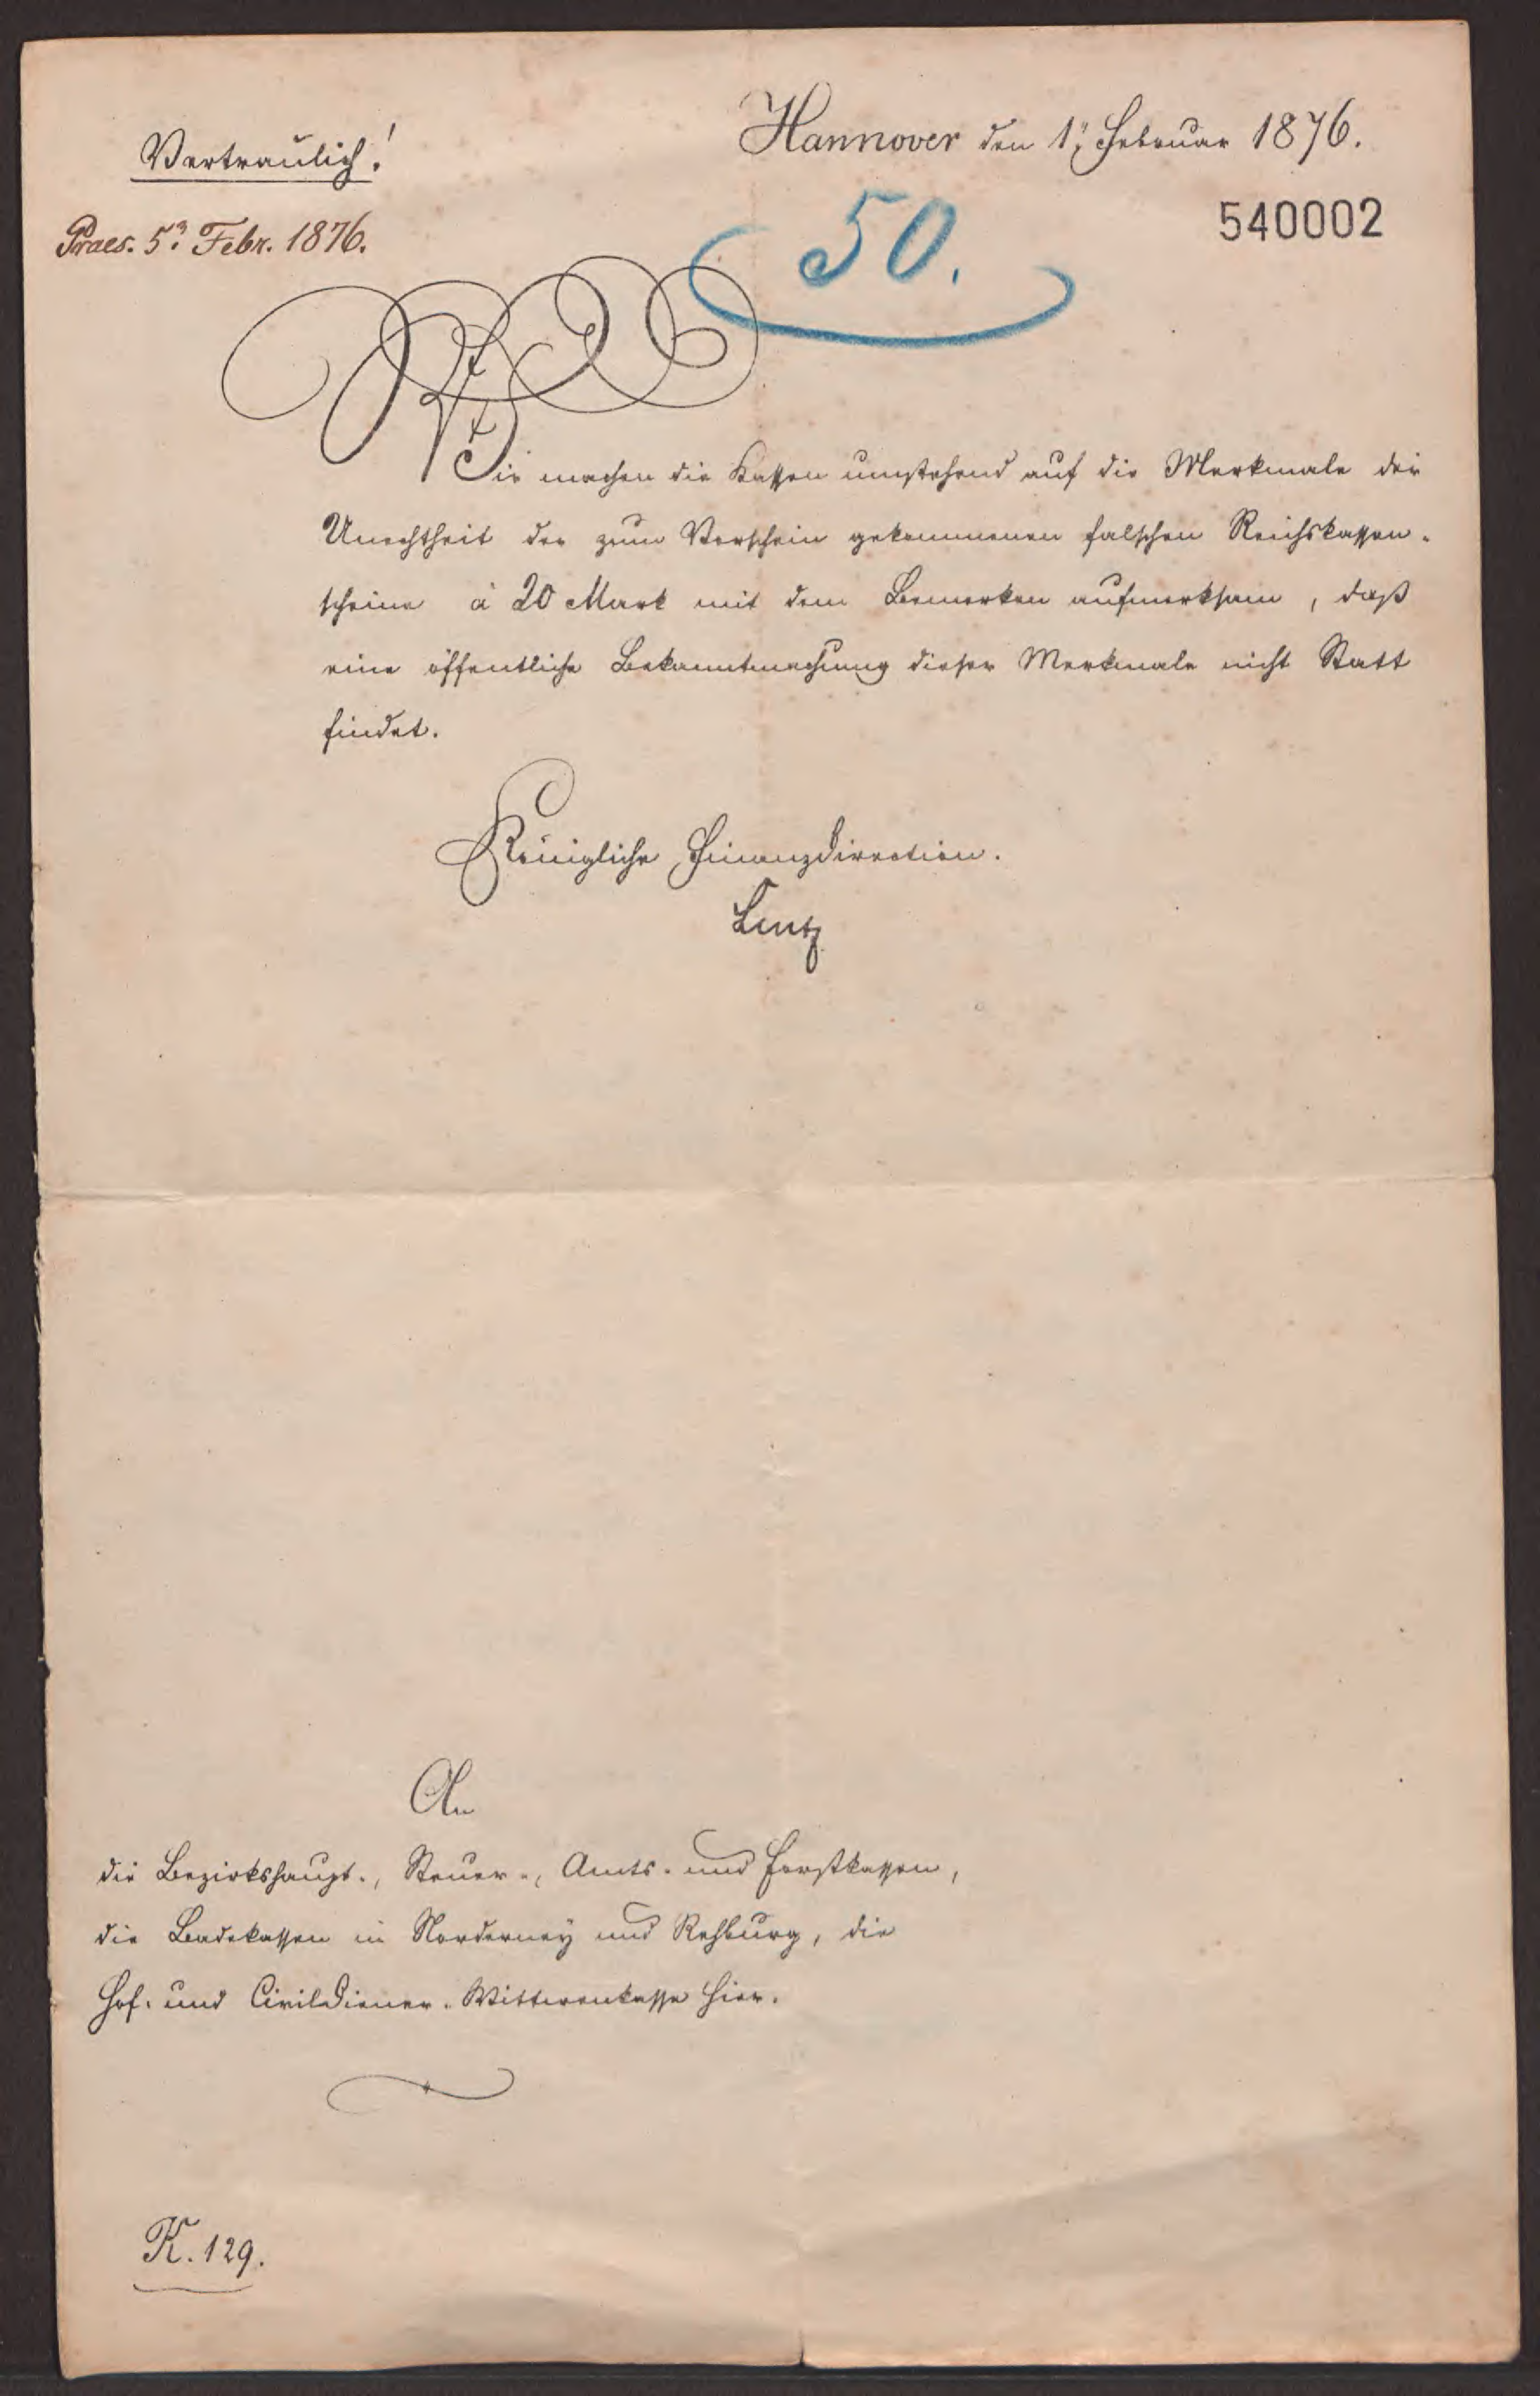 Vertraulich!
Hannover den 1. Februar 1876.
Praes. 5. Febr. 1876.
50.
540002
Wir machen die Kassen umstehend auf die Merkmale der
Unechtheit der zum Vorschein gekommenen falschen Reichskassen-
scheine à 20 Mark mit dem Bemerken aufmerksam, daß
eine öffentliche Bekanntmachung dieser Merkmale nicht Statt
findet.
Königliche Finanzdirection.
Lentz
An
die Bezirkshaupt-, Steuer-, Amts- und Forstkassen,
die Badekassen in Norderney und Rehburg, die
Hof- und Civildiener-Wittwenkasse hier.
K. 129.